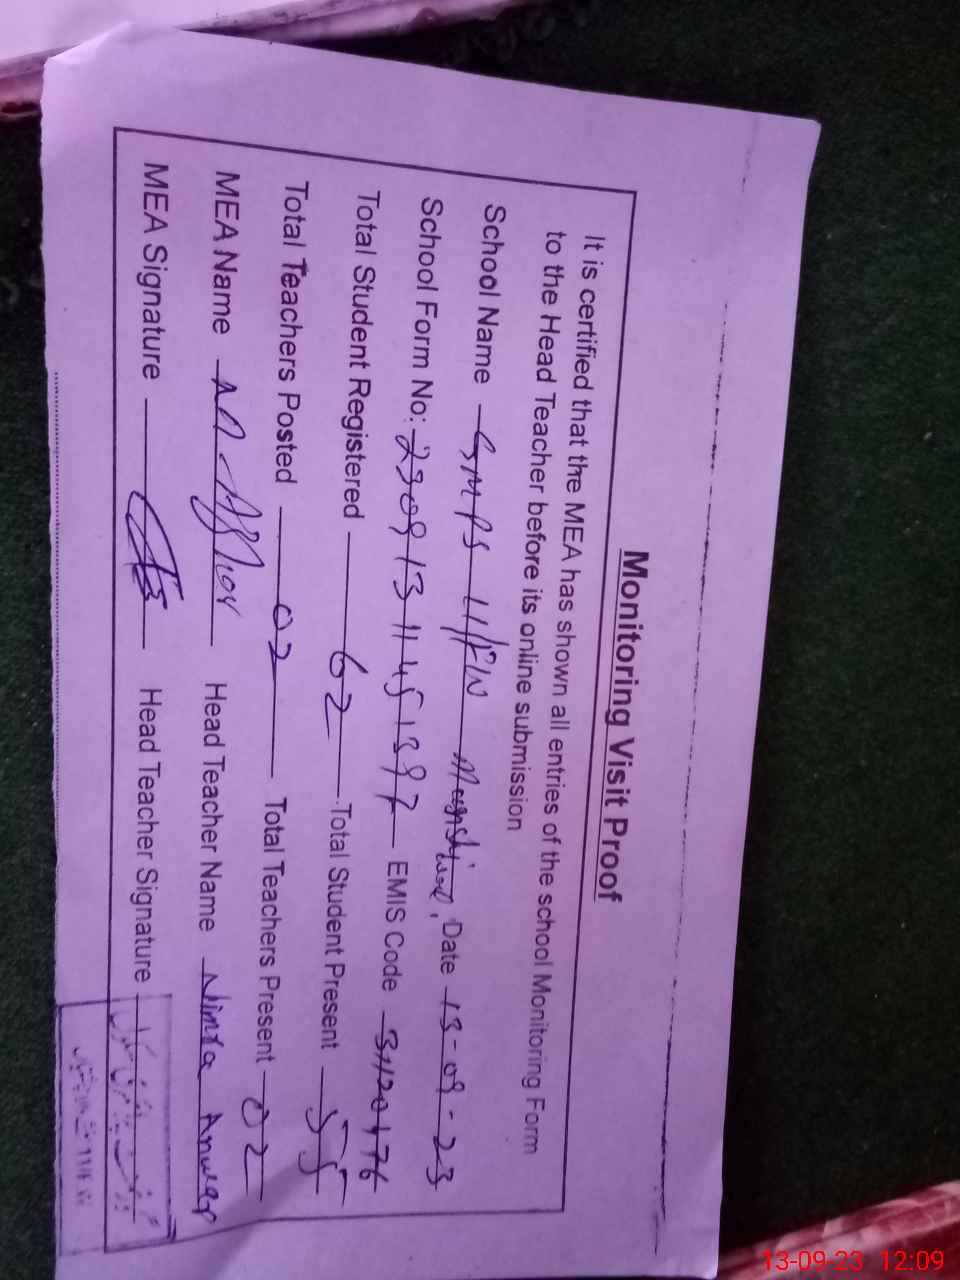 Monitoring Visit Proof
It is certified that the MEA has shown all entries of the school Monitoring Form
to the Head Teacher before its online submission
School Name GMPS 11/FW, Date 13-09-23
School Form No: 23091311451397 EMIS Code 31120176
Total Student Registered 62 Total Student Present 55
Total Teachers Posted 02 Total Teachers Present 02
MEA Name Head Teacher Name Nimra Anwar
MEA Signature Head Teacher Signature
13-09-23 12:09